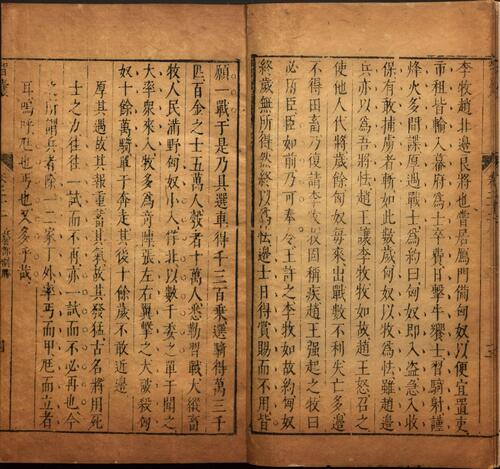 李牧趙北邊良將也嘗居鴈門備匈奴以便宜置吏
市租皆輸入幕府為士卒費日擊牛饗士習騎射謹
烽火多間諜原遇戰士為約曰匈奴即入盜急入收
保有敢捕虜者斬如此數歲匈奴以牧為怯雖趙邊
兵亦以為吾將怯趙王讓李牧牧如故趙王怒召之
使他人代將歲餘匈奴每來出戰數不利失亡多邊
不得田畜乃復請李牧牧固稱疾趙王強起之牧曰
必用臣臣如前乃可奉令王許之李牧如故約匈奴
終歲無所得然終以為怯邊士日得賞賜而不用皆
願一戰于是乃具選車得千三百乘選騎得萬三千
匹百金之士五萬人彀者十萬人悉勒習戰大縱畜
牧人民滿野匈奴小入佯北以數千委之單于聞之
大率衆來入牧多為奇陣張左右翼擊之大破殺匈
奴十餘萬騎單于奔走其後十餘歲不敢近邊
厚其遇故其報重蓄其氣故其發猛古名將用死
士之力往往一試而不再亦一試而不必再也今
之所謂兵者除一二家丁外率丐而甲尪而立者
耳嗚呼尪也丐也又多乎哉